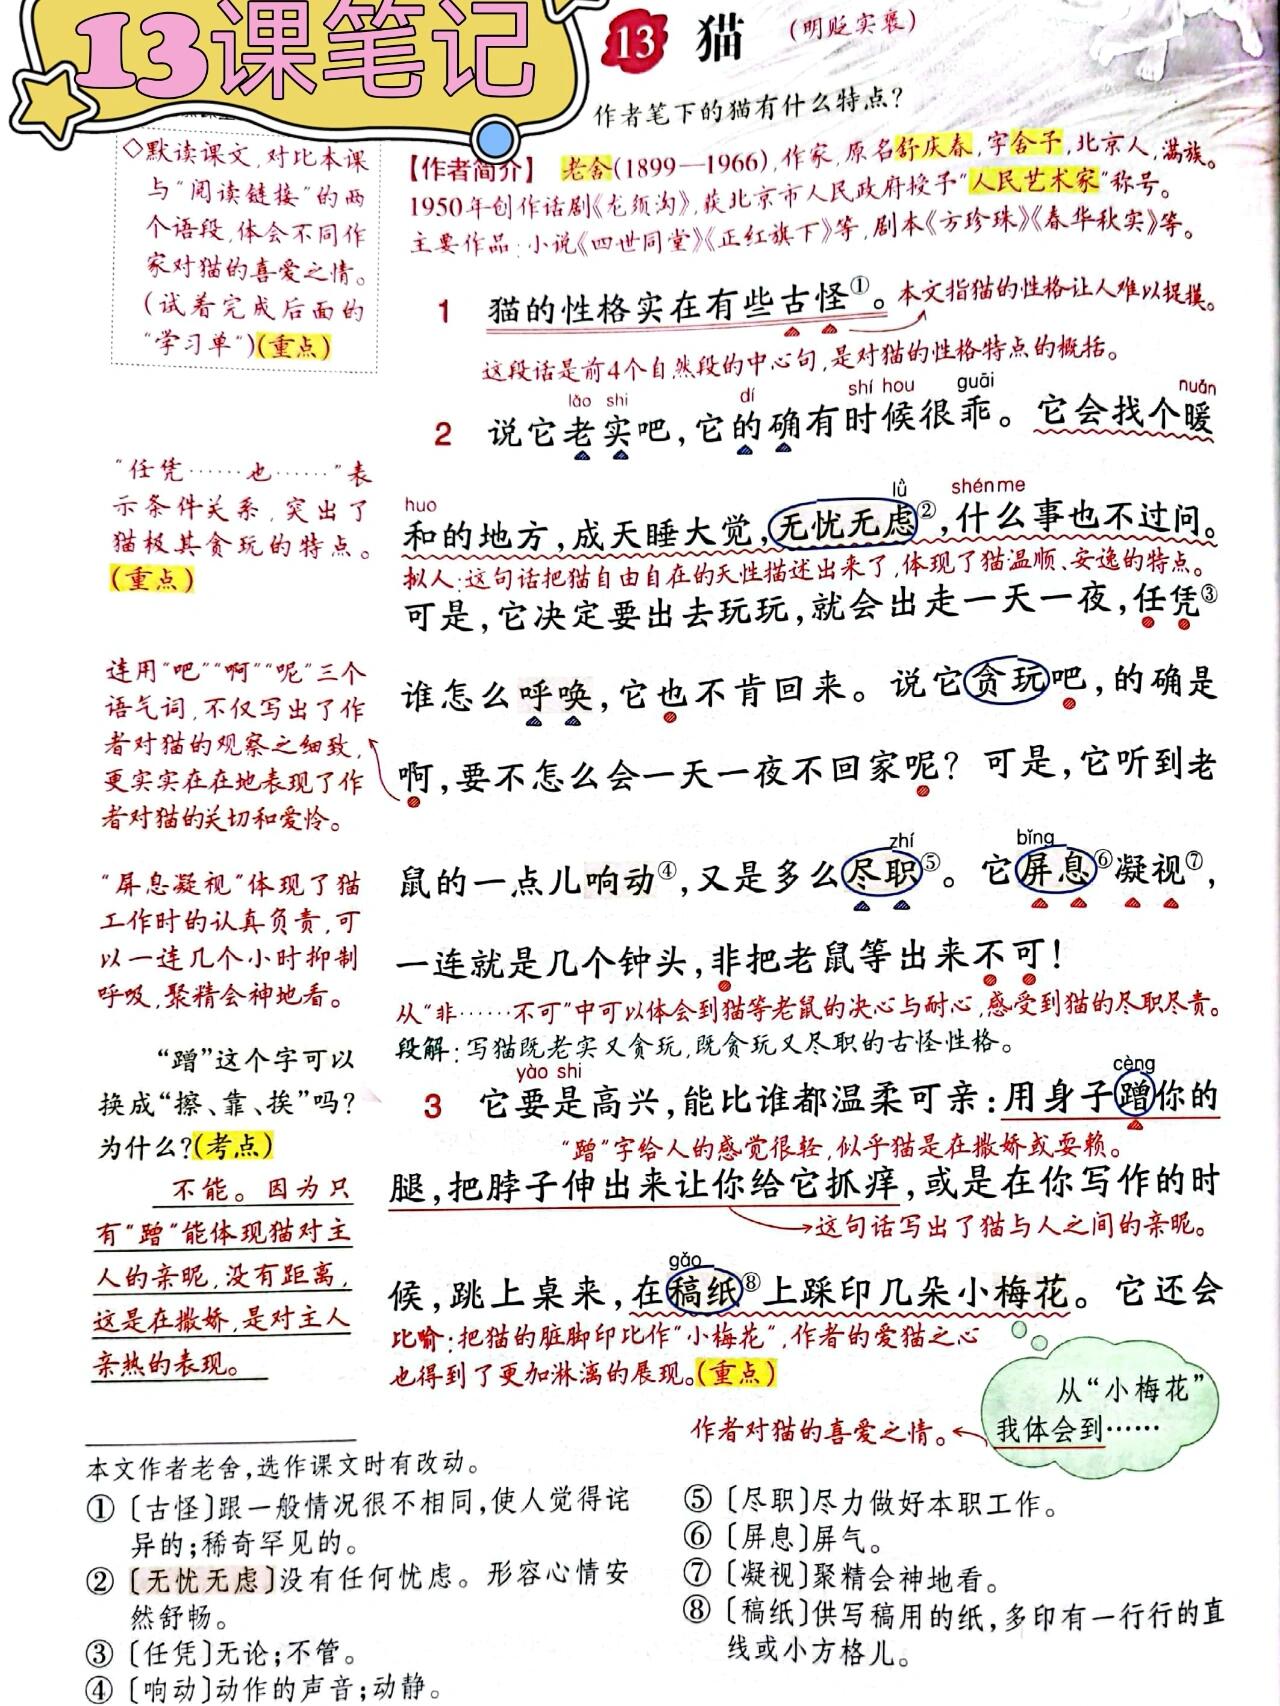 13课笔记
13 猫 (明贬实褒)
作者笔下的猫有什么特点?
◇默读课文,对比本课
与“阅读链接”的两
个语段,体会不同作
家对猫的喜爱之情。
(试着完成后面的
“学习单”)(重点)
【作者简介】 老舍(1899—1966),作家,原名舒庆春,字舍予,北京人,满族。
1950年创作话剧《龙须沟》,获北京市人民政府授予“人民艺术家”称号。
主要作品:小说《四世同堂》《正红旗下》等,剧本《方珍珠》《春华秋实》等。
1 猫的性格实在有些古怪①。本文指猫的性格让人难以捉摸。
这段话是前4个自然段的中心句,是对猫的性格特点的概括。
lǎo shi dí shí hou guāi nuǎn
2 说它老实吧,它的确有时候很乖。它会找个暖
“任凭……也……”表
示条件关系,突出了
猫极其贪玩的特点。
(重点)
huo lǜ shén me
和的地方,成天睡大觉,无忧无虑②,什么事也不过问。
拟人:这句话把猫自由自在的天性描述出来了,体现了猫温顺、安逸的特点。
可是,它决定要出去玩玩,就会出走一天一夜,任凭③
连用“吧”“啊”“呢”三个
语气词,不仅写出了作
者对猫的观察之细致,
更实实在在地表现了作
者对猫的关切和爱怜。
谁怎么呼唤,它也不肯回来。说它贪玩吧,的确是
啊,要不怎么会一天一夜不回家呢?可是,它听到老
zhí bǐng
鼠的一点儿响动④,又是多么尽职⑤。它屏息⑥凝视⑦,
“屏息凝视”体现了猫
工作时的认真负责,可
以一连几个小时抑制
呼吸,聚精会神地看。
一连就是几个钟头,非把老鼠等出来不可!
从“非……不可”中可以体会到猫等老鼠的决心与耐心,感受到猫的尽职尽责。
段解:写猫既老实又贪玩,既贪玩又尽职的古怪性格。
“蹭”这个字可以
换成“擦、靠、挨”吗?
为什么?(考点)
不能。因为只
有“蹭”能体现猫对主
人的亲昵,没有距离,
这是在撒娇,是对主人
亲热的表现。
yào shi cèng
3 它要是高兴,能比谁都温柔可亲:用身子蹭你的
“蹭”字给人的感觉很轻,似乎猫是在撒娇或耍赖。
腿,把脖子伸出来让你给它抓痒,或是在你写作的时
这句话写出了猫与人之间的亲昵。
gǎo
候,跳上桌来,在稿纸⑧上踩印几朵小梅花。它还会
比喻:把猫的脏脚印比作“小梅花”,作者的爱猫之心
也得到了更加淋漓的展现。(重点)
从“小梅花”
我体会到……
作者对猫的喜爱之情。
本文作者老舍,选作课文时有改动。
①〔古怪〕跟一般情况很不相同,使人觉得诧
异的;稀奇罕见的。
②〔无忧无虑〕没有任何忧虑。形容心情安
然舒畅。
③〔任凭〕无论;不管。
④〔响动〕动作的声音;动静。
⑤〔尽职〕尽力做好本职工作。
⑥〔屏息〕屏气。
⑦〔凝视〕聚精会神地看。
⑧〔稿纸〕供写稿用的纸,多印有一行行的直
线或小方格儿。